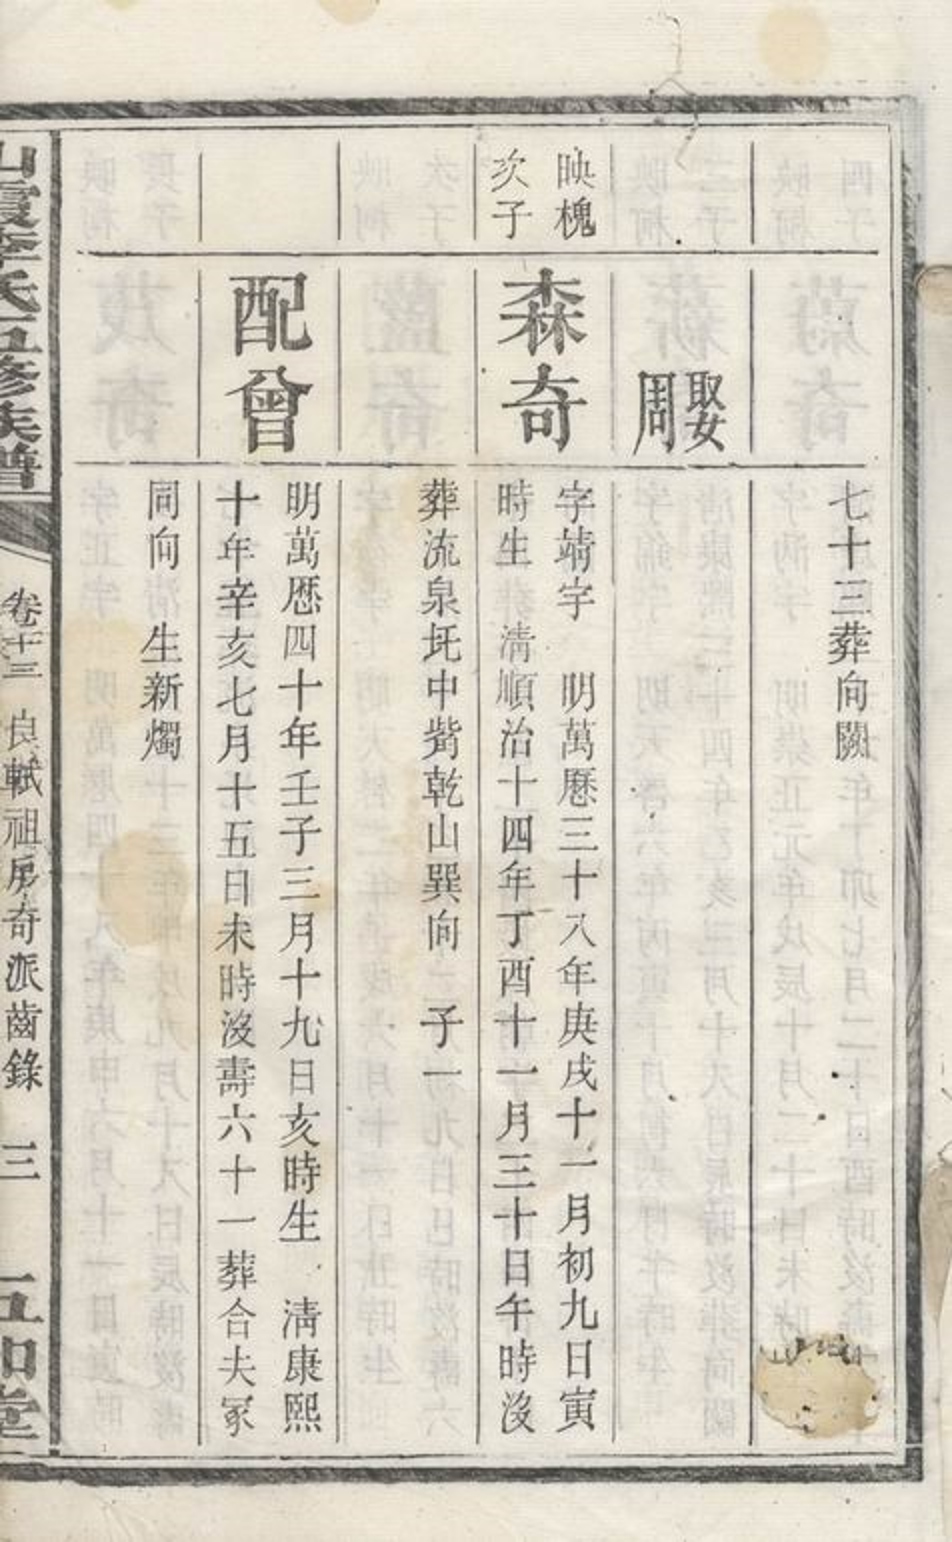 七十三葬向闕
娶周
映槐次子
森奇
字靖字　明萬曆三十八年庚戌十一月初九日寅
時生　清順治十四年丁酉十一月三十日午時沒
葬流泉坉中觜乾山巽向　子一
配曾
明萬曆四十年壬子三月十九日亥時生　清康熙
十年辛亥七月十五日未時沒壽六十一葬合夫冢
同向　生新燭
李氏五修族譜
卷十三　良軾祖房奇派齒錄　三
五知堂